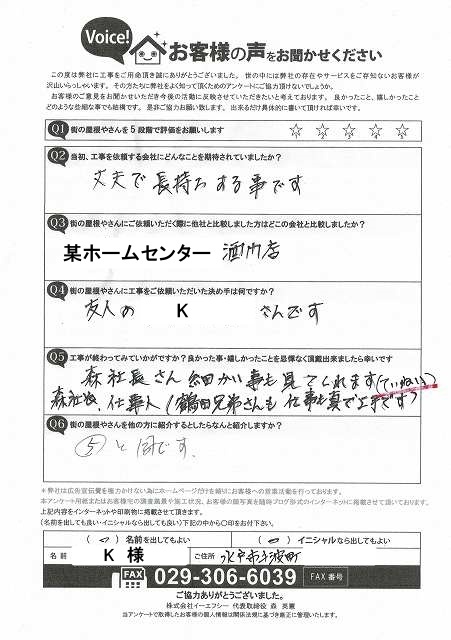 Voice!
お客様の声をお聞かせください
この度は弊社に工事をご用命頂き誠にありがとうございました。世の中には弊社の存在やサービスをご存知ないお客様が
沢山いらっしゃいます。その方たちに弊社をよく知って頂くためのアンケートにご協力頂けないでしょうか。
お客様のご意見をお聞かせいただき今後の活動に反映させていただきたいと考えております。良かったこと、嬉しかったこと
どのような些細な事でも結構です。是非ご協力お願い致します。出来るだけ具体的に書いて頂ければ幸いです。
Q1 街の屋根やさんを5段階で評価をお願いします ☆ ☆ ☆ ☆ ☆
Q2 当初、工事を依頼する会社にどんなことを期待されていましたか？
丈夫で長持ちする事です
Q3 街の屋根やさんにご依頼いただく際に他社と比較しました方はどこの会社と比較しましたか？
某ホームセンター 酒門店
Q4 街の屋根やさんに工事をご依頼いただいた決め手は何ですか？
友人の K さんです
Q5 工事が終わってみていかがですか？良かった事・嬉しかったことを忌憚なく頂戴出来ましたら幸いです
森社長さん細かい事も見てくれます(ていねい)
森社長、仕事人(鶴田兄弟さんも仕事も真で上手です)
Q6 街の屋根やさんを他の方に紹介するとしたらなんと紹介しますか？
⑤と同です。
＊弊社は広告宣伝費を極力かけない為にホームページだけを頼りにお客様への営業活動を行っております。
本アンケート用紙またはお客様宅の調査風景や施工状況、お客様の顔写真を随時ブログ形式のインターネットに掲載させて頂いております。
上記内容をインターネットや印刷物に掲載させて頂きます。
(名前を出しても良い・イニシャルなら出しても良い)下記の中から〇印をお付け下さい。
( ) 名前を出してもよい ( ○ ) イニシャルなら出してもよい
名前 K 様 ご住所 水戸市千波町
FAX 029-306-6039 FAX 番号
ご協力ありがとうございました。
株式会社イーエフシー 代表取締役 森 英憲
当アンケートで取得したお客様の個人情報は関係法規に基づき厳正に管理いたします。